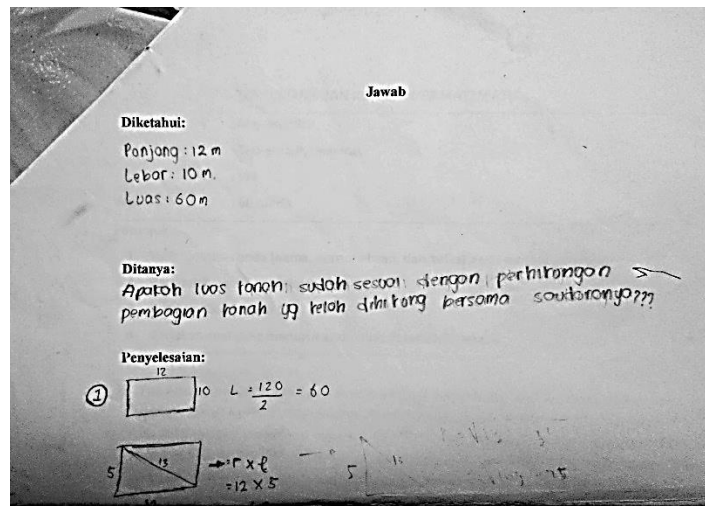 Jawab
Diketahui:
Panjang : 12 m
Lebar : 10 m.
Luas : 60 m
Ditanya:
Apakah luas tanah sudah sesuai dengan perhitungan
pembagian tanah yg telah dihitung bersama saudaranya???
Penyelesaian:
12
1 10 L = 120/2 = 60
5 13 → = p x l
= 12 x 5
5